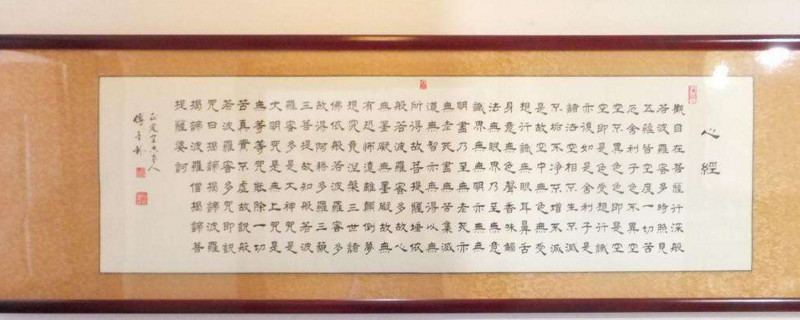 心經
觀自在菩薩行深般
若波羅蜜多時照見
五蘊皆空度一切苦
厄舍利子色不異空
空不異色色即是空
空即是色受想行識
亦復如是舍利子是
諸法空相不生不滅
不垢不淨不增不減
是故空中無色無受
想行識無眼耳鼻舌
身意無色聲香味觸
法無眼界乃至無意
識界無無明亦無無
明盡乃至無老死亦
無老死盡無苦集滅
道無智亦無得以無
所得故菩提薩埵依
般若波羅蜜多故心
無罣礙無罣礙故無
有恐怖遠離顛倒夢
想究竟涅槃三世諸
佛依般若波羅蜜多
故得阿耨多羅三藐
三菩提故知般若波
羅蜜多是大神咒是
大明咒是無上咒是
無等等咒能除一切
苦真實不虛故說般
若波羅蜜多咒即說
咒曰揭諦揭諦波羅
揭諦波羅僧揭諦菩
提薩婆訶